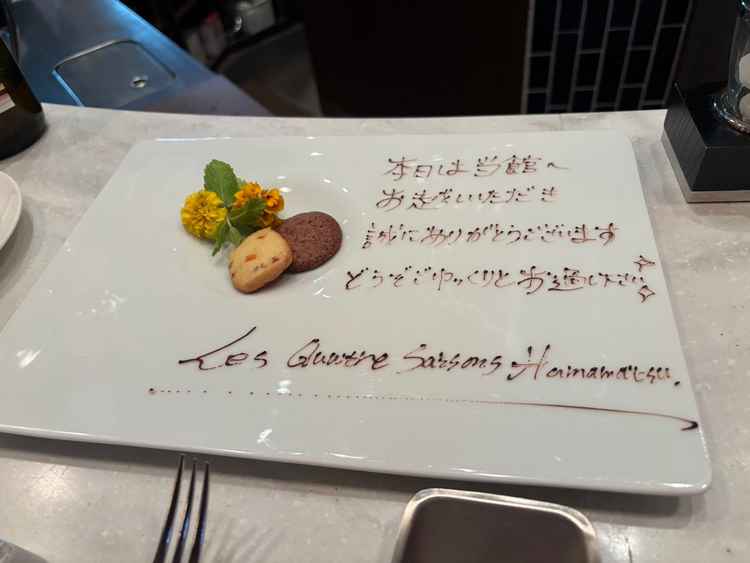 本日は当館へ
お越しいただき
誠にありがとうございます
どうぞごゆっくりとお過ごしください
Les Quatre Saisons Hamamatsu.